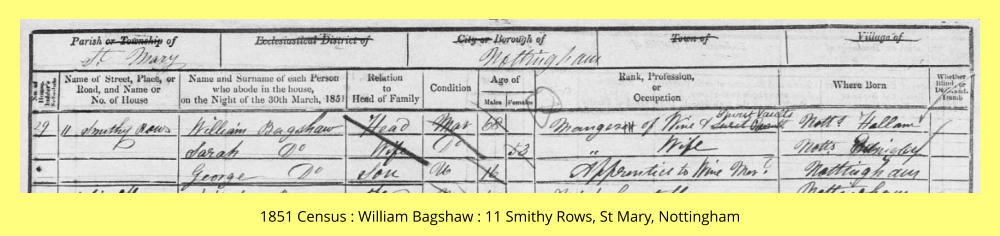 Parish or Township of
Ecclesiastical District of
City or Borough of
Town of
Village of
St Mary
Nottingham
Name of Street, Place, or Road, and Name or No. of House
Name and Surname of each Person who abode in the house, on the Night of the 30th March, 1851
Relation to Head of Family
Condition
Age of
Males
Females
Rank, Profession, or Occupation
Where Born
Whether Blind, or Deaf-and-Dumb
29 11 Smithy Rows William Bagshaw Head Mar 68 of Wine & Spirit Vaults Notts Hallam
Sarah Do Wife Do 53 " Wife Notts
George Do Son Un 16 Apprentice to Wine Mer? Nottingham
1851 Census : William Bagshaw : 11 Smithy Rows, St Mary, Nottingham